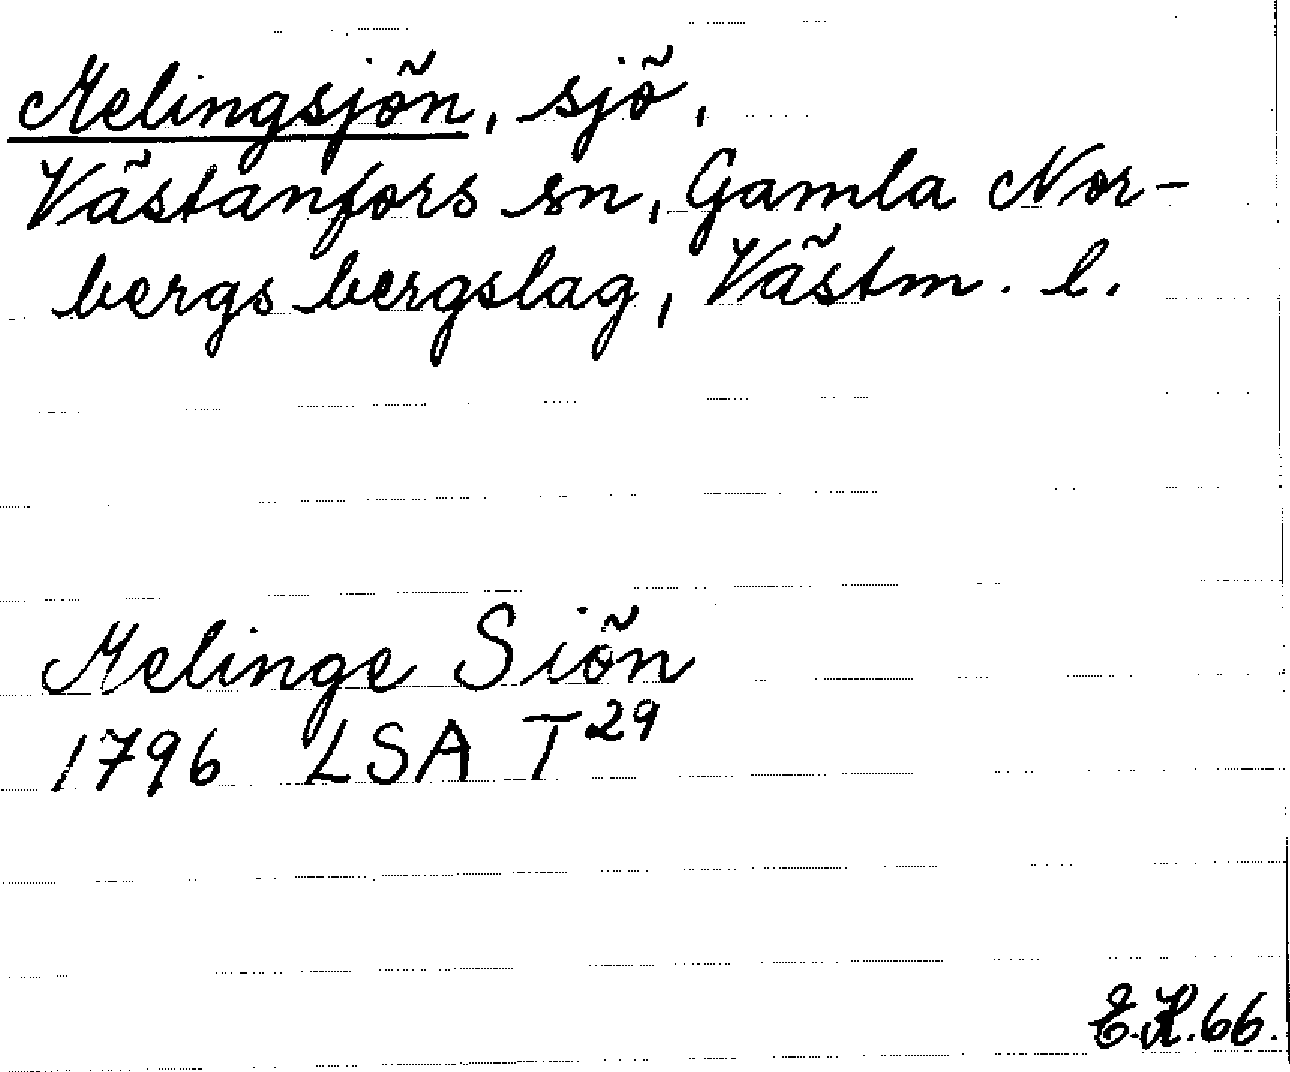 Melingsjön, sjö,
Västanfors sn, Gamla Nor-
bergs bergslag, Västm. l.
Melinge Siön
1796 LSA T29
E.K.66.